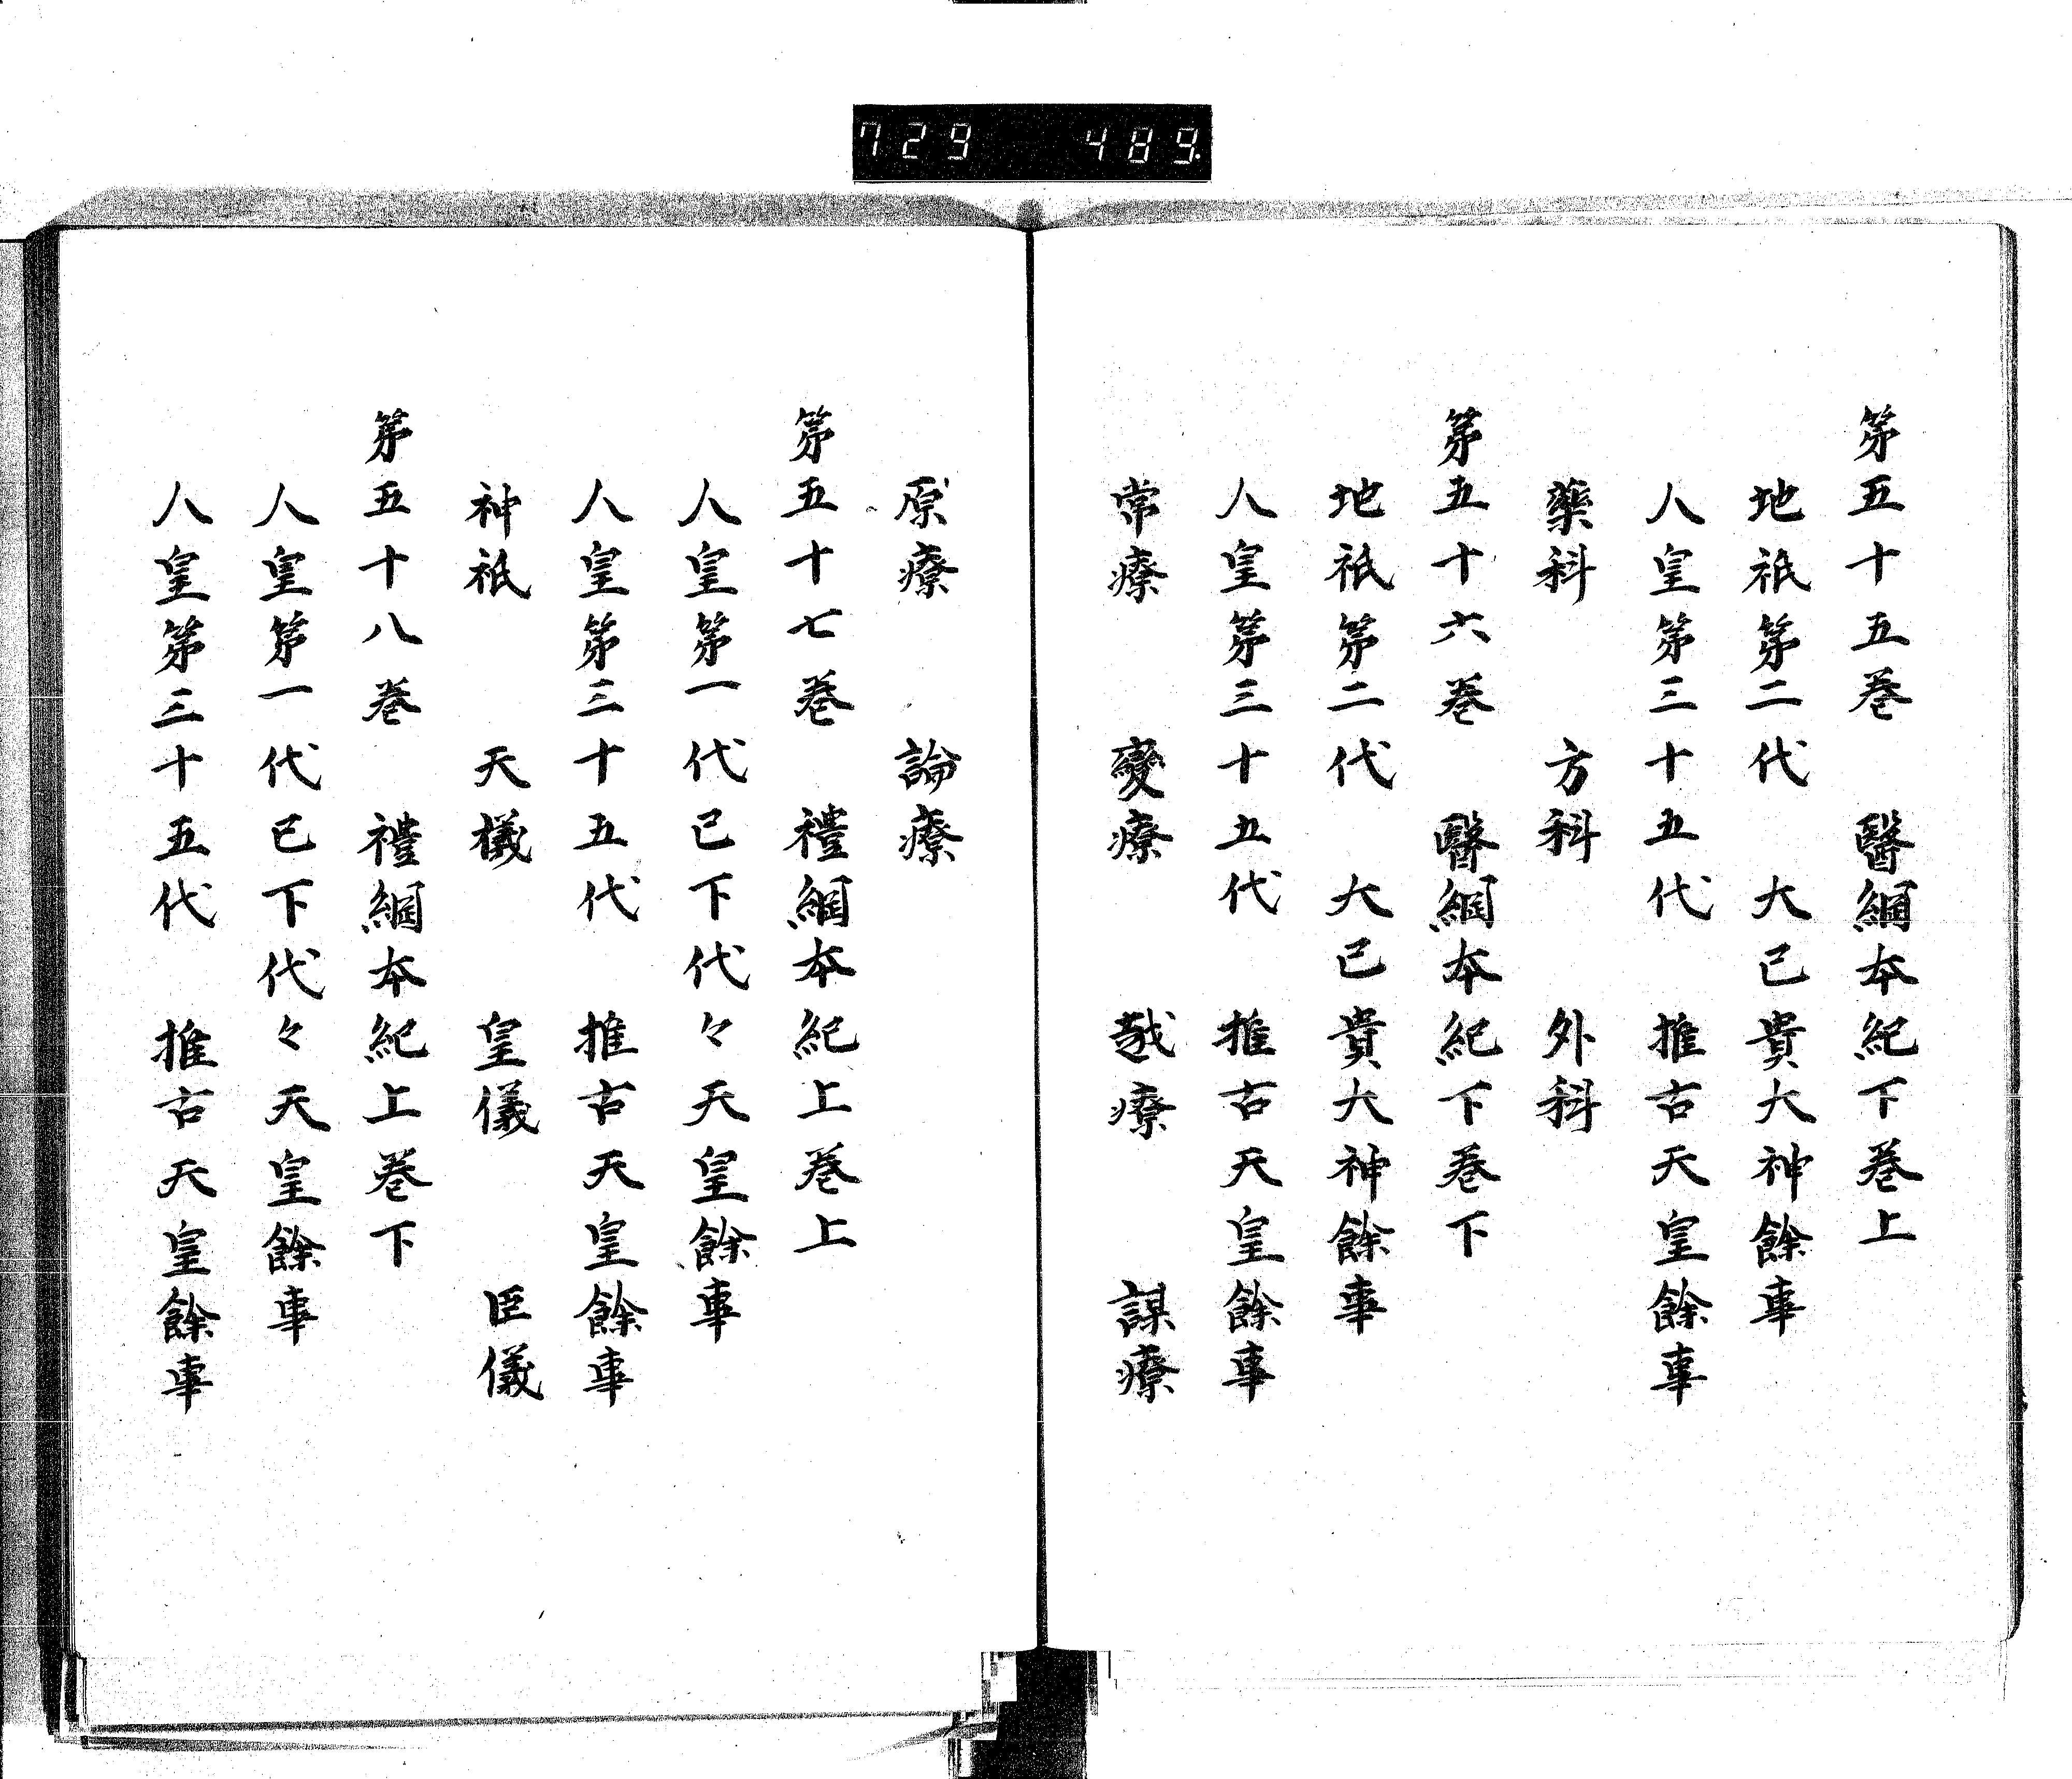 729 489
第五十五巻 醫綱本紀下巻上
地祇第二代 大己貴大神餘事
人皇第三十五代 推古天皇餘事
藥科 方科 外科
第五十六巻 醫綱本紀下巻下
地祇第二代 大己貴大神餘事
人皇第三十五代 推古天皇餘事
常療 變療 越療 謀療
原療 論療
第五十七巻 禮綱本紀上巻上
人皇第一代已下代々天皇餘事
人皇第三十五代 推古天皇餘事
神祇 天儀 皇儀 臣儀
第五十八巻 禮綱本紀上巻下
人皇第一代已下代々天皇餘事
人皇第三十五代 推古天皇餘事